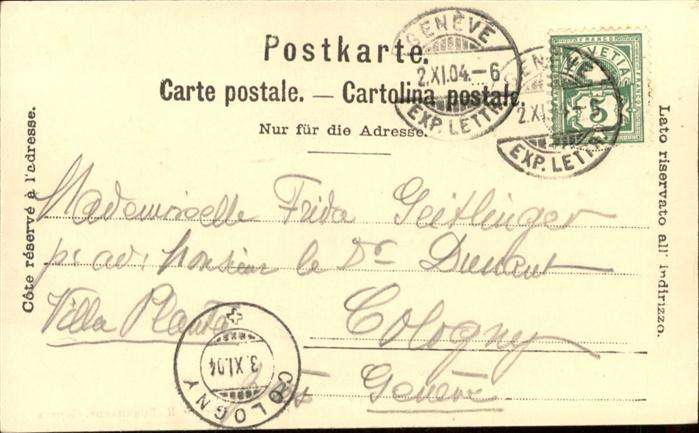 Postkarte.
Carte postale. — Cartolina postale.
Nur für die Adresse.
Côte réservé à l'adresse.
Lato riservato all' indirizzo.
GENÈVE
2.XI.04.-6
EXP. LETTR.
GENÈVE
2.XI.
EXP. LETTR.
HELVETIA
FRANCO
5
Mademoiselle Frida Geitlinger
pr. adr. Monsieur le Dr. Dunant
Villa Planta
Cologny
Genève
COLOGNY
3.XI.04